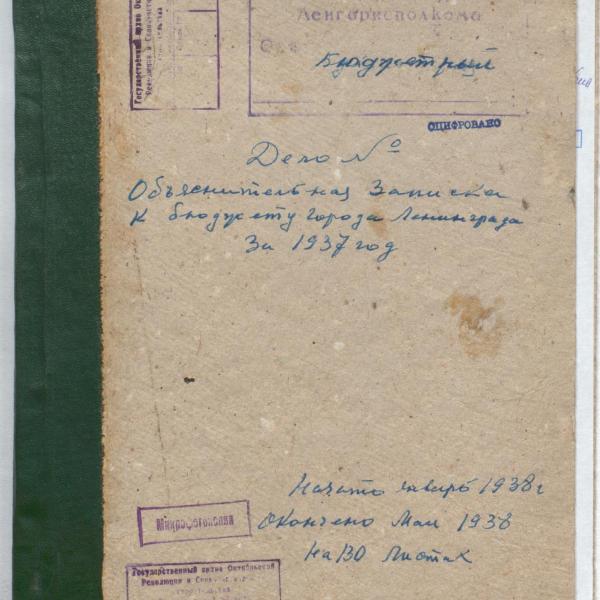 Государственный архив Ок
Революции и Социалистич
Ленгорисполкома
Бюджетный
ОЦИФРОВАНО
Дело №
Объяснительная Записка
К бюджету города Ленинграда
За 1937 год
Начато январь 1938 г
Окончено Май 1938
На 130 Листах
Микрофотокопия
Государственный архив Октябрьской
Революции и Соц.